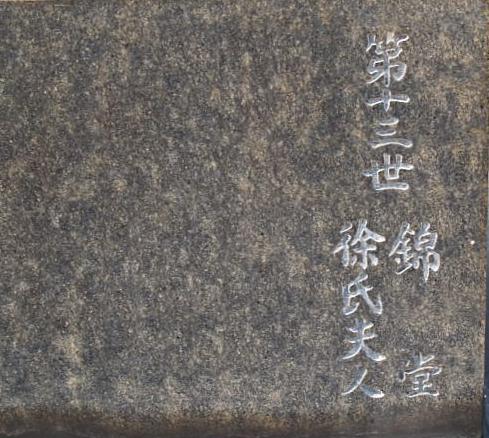 第十三世
錦堂
徐氏夫人